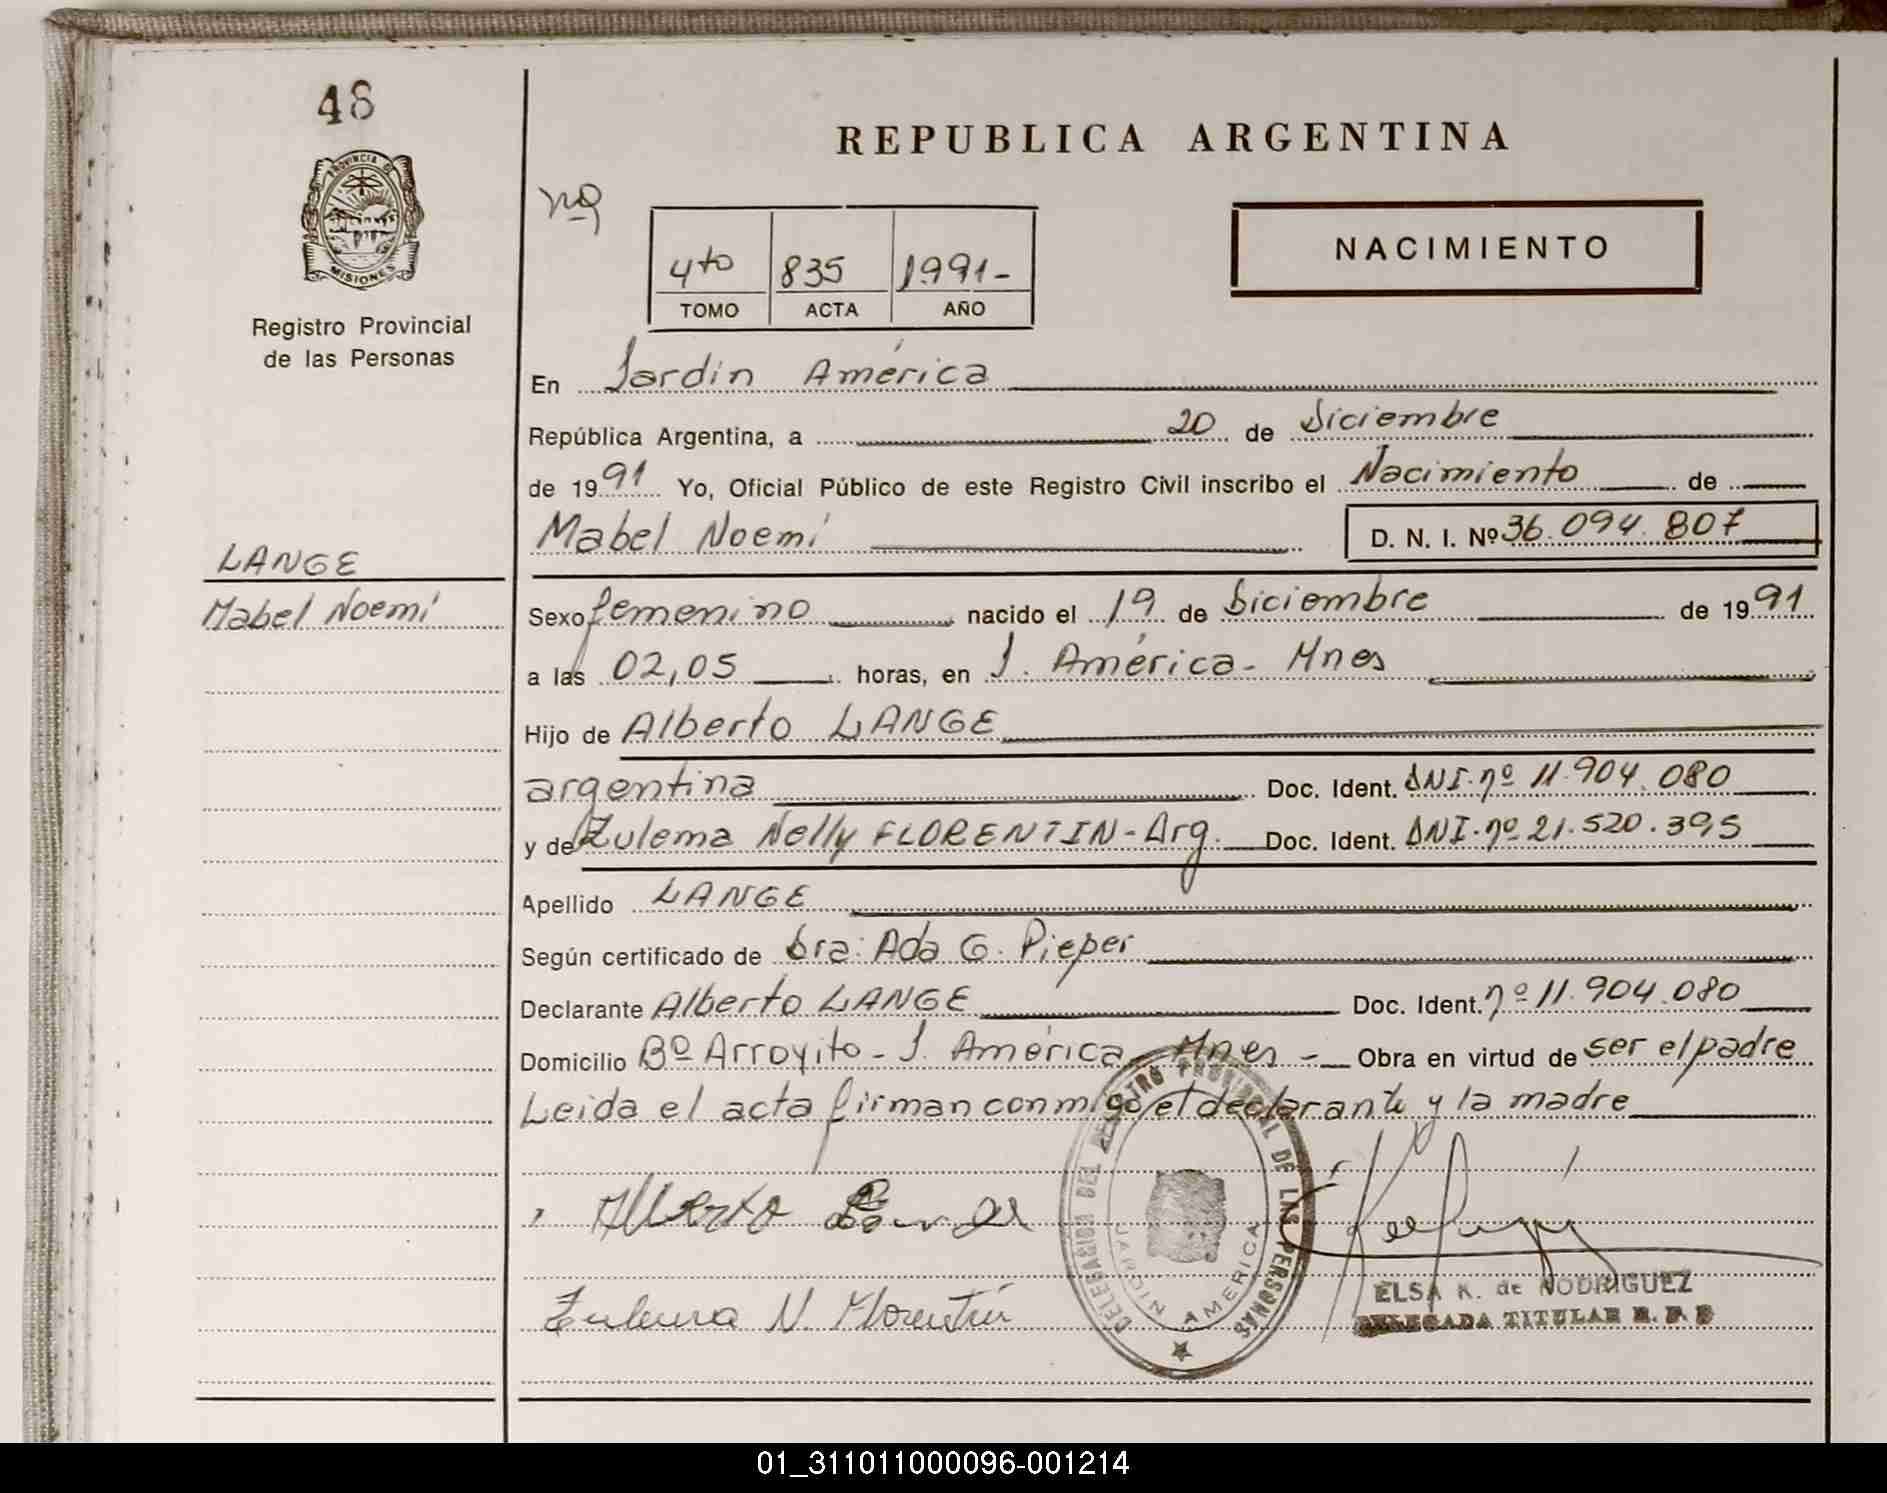 48
PROVINCIA DE
MISIONES
Registro Provincial
de las Personas
LANGE
Mabel Noemí
REPUBLICA ARGENTINA
nº
4to 835 1991-
TOMO ACTA AÑO
NACIMIENTO
En Jardín América
República Argentina, a 20 de Diciembre
de 1991 Yo, Oficial Público de este Registro Civil inscribo el Nacimiento de
Mabel Noemí D. N. I. Nº 36.094.807
Sexo femenino nacido el 19 de Diciembre de 1991
a las 02,05 horas, en J. América- Mnes
Hijo de Alberto LANGE
argentina Doc. Ident. DNI.nº 11.904.080
y de Zulema Nelly FLORENTIN-Arg. Doc. Ident. DNI.nº 21.520.395
Apellido LANGE
Según certificado de Dra: Ada G. Pieper
Declarante Alberto LANGE Doc. Ident. nº 11.904.080
Domicilio Bº Arroyito- J. América- Mnes - Obra en virtud de ser el padre
Leida el acta firman conmigo el declarante y la madre
Alberto Lange
Zulema N. Florentín
DELEGACION DEL REGISTRO PROVINCIAL DE LAS PERSONAS
JARDIN AMERICA
ELSA K. de RODRIGUEZ
DELEGADA TITULAR R. P. P
01_311011000096-001214